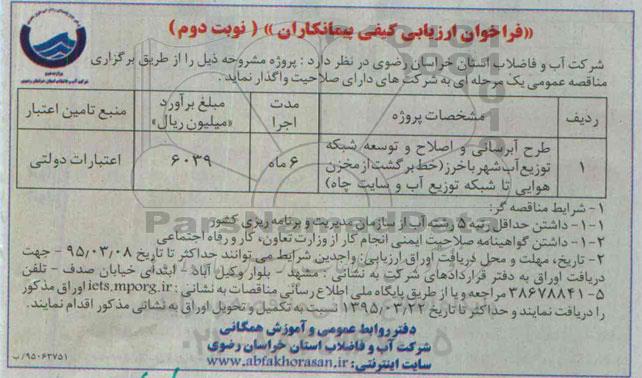 «فراخوان ارزیابی کیفی پیمانکاران» (نوبت دوم)
شرکت آب و فاضلاب استان خراسان رضوی در نظر دارد : پروژه مشروحه ذیل را از طریق برگزاری
مناقصه عمومی یک مرحله ای به شرکت های دارای صلاحیت واگذار نماید .
ردیف مشخصات پروژه مدت اجرا مبلغ برآورد «میلیون ریال» منبع تامین اعتبار
۱ طرح آبرسانی و اصلاح و توسعه شبکه توزیع آب شهر باخرز (خط برگشت از مخزن هوایی تا شبکه توزیع آب و سایت چاه) ۶ ماه ۶۰۳۹ اعتبارات دولتی
۱- شرایط مناقصه گر:
۱-۱- داشتن حداقل رتبه ۵ رشته آب از سازمان مدیریت و برنامه ریزی کشور
۱-۲- داشتن گواهینامه صلاحیت ایمنی انجام کار از وزارت تعاون، کار و رفاه اجتماعی
۲- تاریخ، مهلت و محل دریافت اوراق ارزیابی: واجدین شرایط می توانند حداکثر تا تاریخ ۹۵/۰۳/۰۸ - جهت
دریافت اوراق به دفتر قراردادهای شرکت به نشانی : مشهد - بلوار وکیل آباد - ابتدای خیابان صدف - تلفن
۵-۳۸۶۷۸۸۴۱ مراجعه و یا از طریق پایگاه ملی اطلاع رسانی مناقصات به نشانی : iets.mporg.ir اوراق مذکور
را دریافت نمایند و حداکثر تا تاریخ ۱۳۹۵/۰۳/۲۲ نسبت به تکمیل و تحویل اوراق به نشانی مذکور اقدام نمایند.
دفتر روابط عمومی و آموزش همگانی
شرکت آب و فاضلاب استان خراسان رضوی
سایت اینترنتی: www.abfakhorasan.ir
۹۵۰۶۳۷۵۱/ب
ParsNamadData